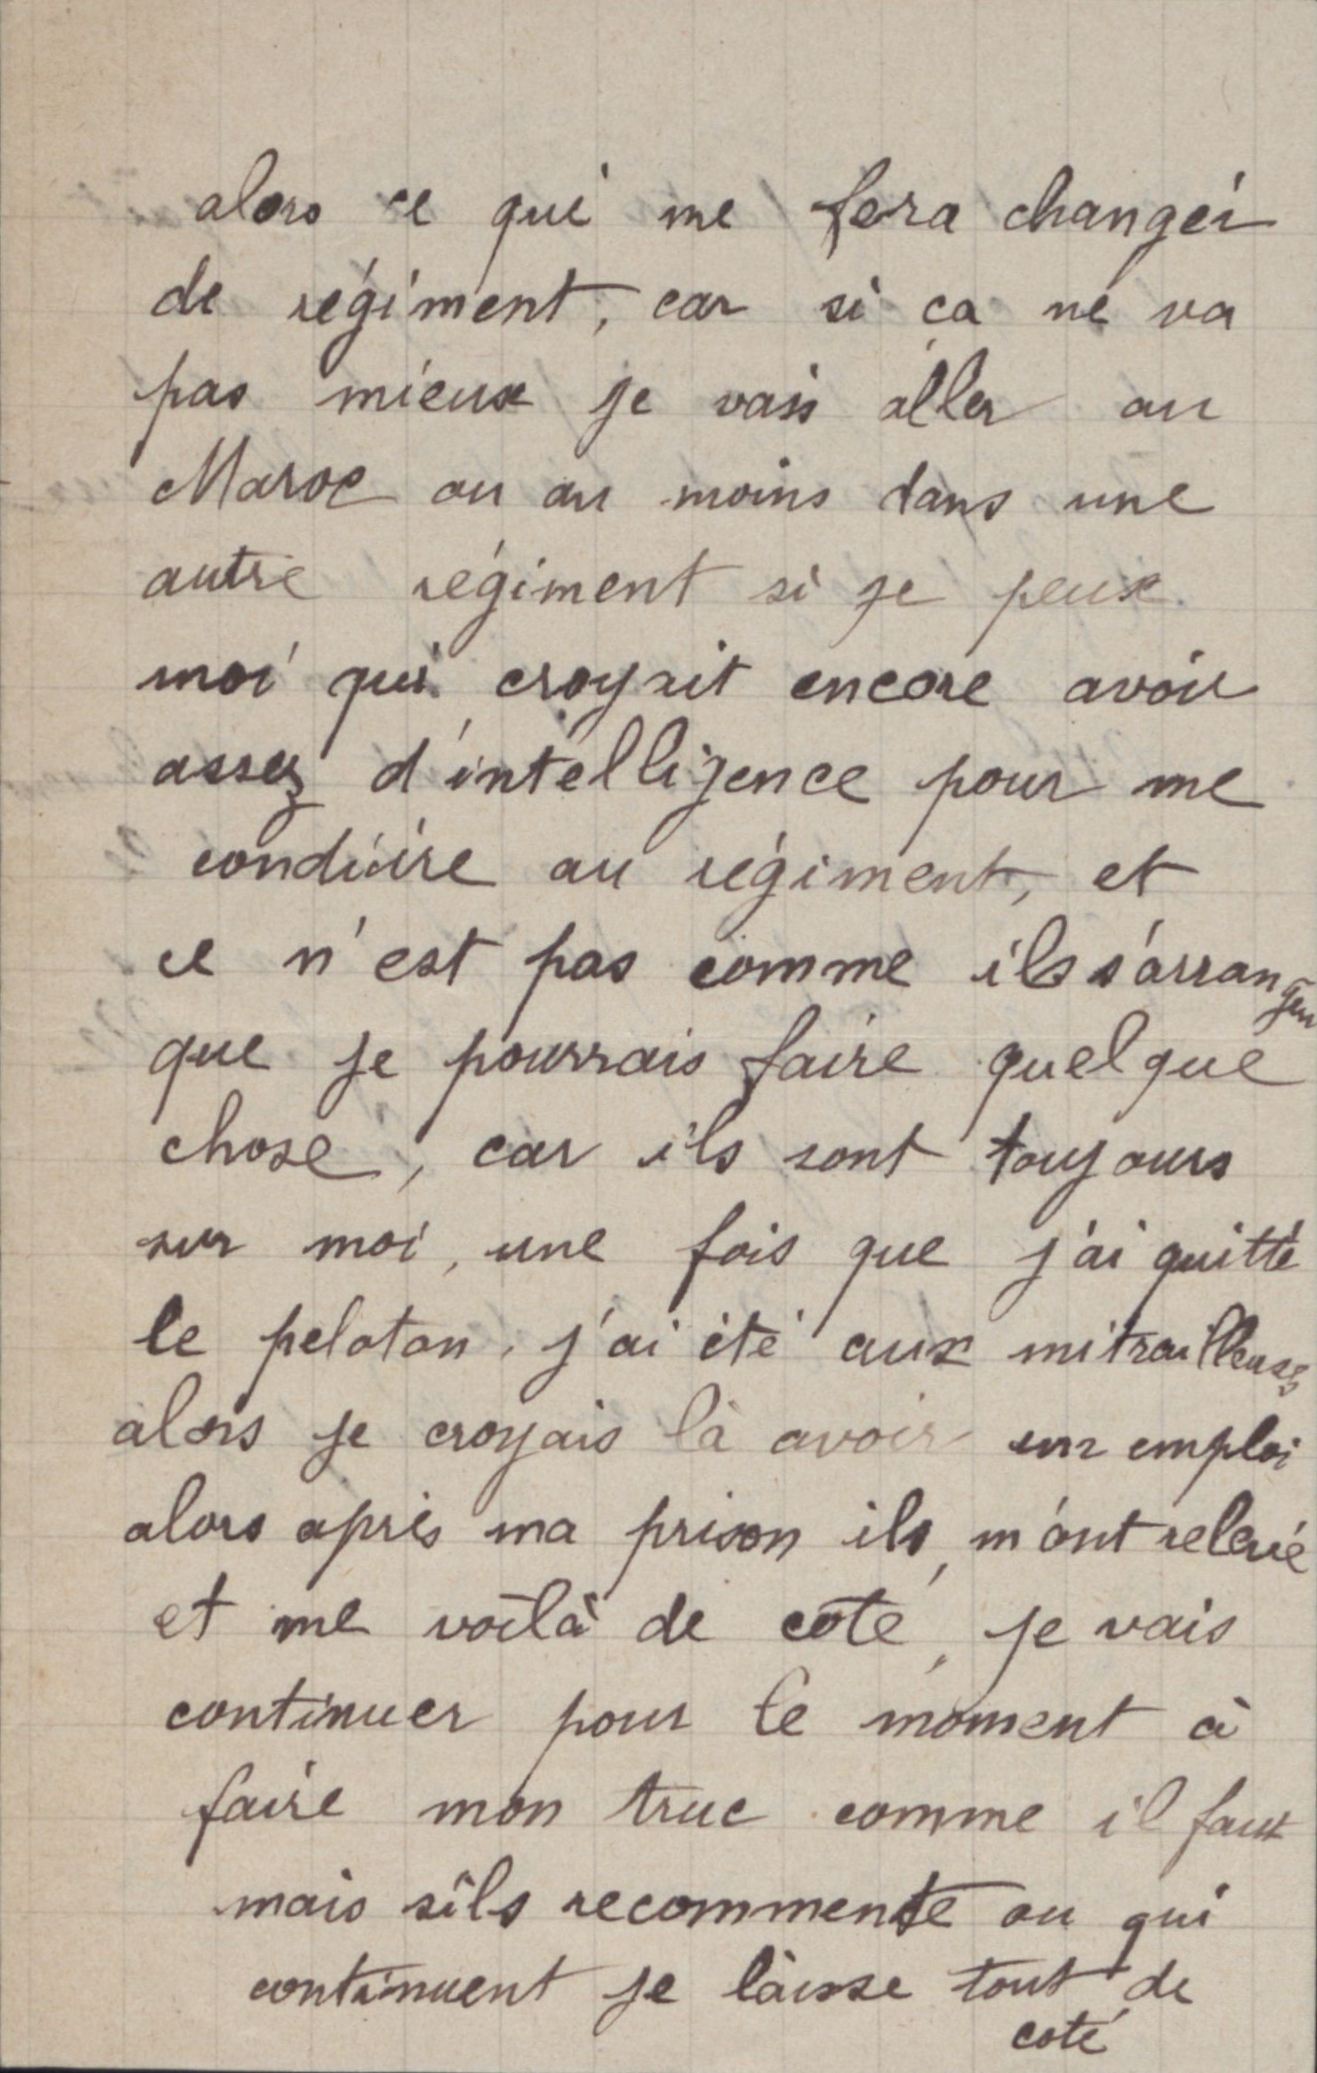 alors ce qui me fera changer
de régiment, car si ça ne va
pas mieux je vais aller au
Maroc ou au moins dans une
autre régiment si je peux
moi qui croyait encore avoir
assez d'intelligence pour me
conduire au régiment, et
ce n'est pas comme ils s'arrangen
que je pourrais faire quelque
chose, car ils sont toujours
sur moi, une fois que j'ai quitté
le peloton, j'ai été aux mitrailleuses
alors je croyais là avoir un emploi
alors après ma prison ils m'ont relevé
et me voilà de coté, je vais
continuer pour le moment à
faire mon truc comme il faut
mais s'ils recommente ou qui
continuent je laisse tout de
coté